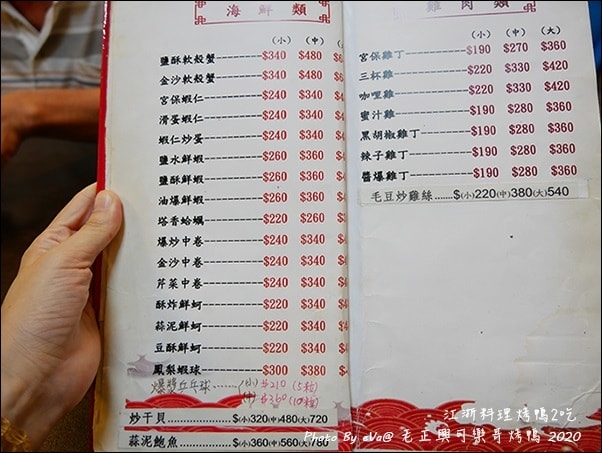 海鮮類
(小) (中)
鹽酥軟殼蟹----------$340 $480
金沙軟殼蟹----------$340 $480
宮保蝦仁----------$240 $340
滑蛋蝦仁----------$240 $340
蝦仁炒蛋----------$240 $340
鹽水鮮蝦----------$260 $360
鹽酥鮮蝦----------$260 $360
油爆鮮蝦----------$260 $360
塔香蛤蠣----------$220 $260
爆炒中卷----------$240 $340
金沙中卷----------$240 $340
芹菜中卷----------$240 $340
酥炸鮮蚵----------$220 $340
蒜泥鮮蚵----------$220 $340
豆酥鮮蚵----------$220 $340
鳳梨蝦球----------$300 $380
爆漿乒乓球……(小) $210 (5粒)
(中) $360 (10粒)
炒干貝..................$(小)320(中)480(大)720
蒜泥鮑魚..............$(小)360(中)560(大)780
雞肉類
(小) (中) (大)
宮保雞丁----------$190 $270 $360
三杯雞----------$220 $330 $420
咖哩雞----------$220 $330 $420
蜜汁雞----------$190 $280 $360
黑胡椒雞丁----------$190 $280 $360
辣子雞丁----------$190 $280 $360
醬爆雞丁----------$190 $280 $360
毛豆炒雞絲......$(小)220(中)380(大)540
江浙料理烤鴨2吃
Photo By eVa@ 老正興可樂哥烤鴨 2020